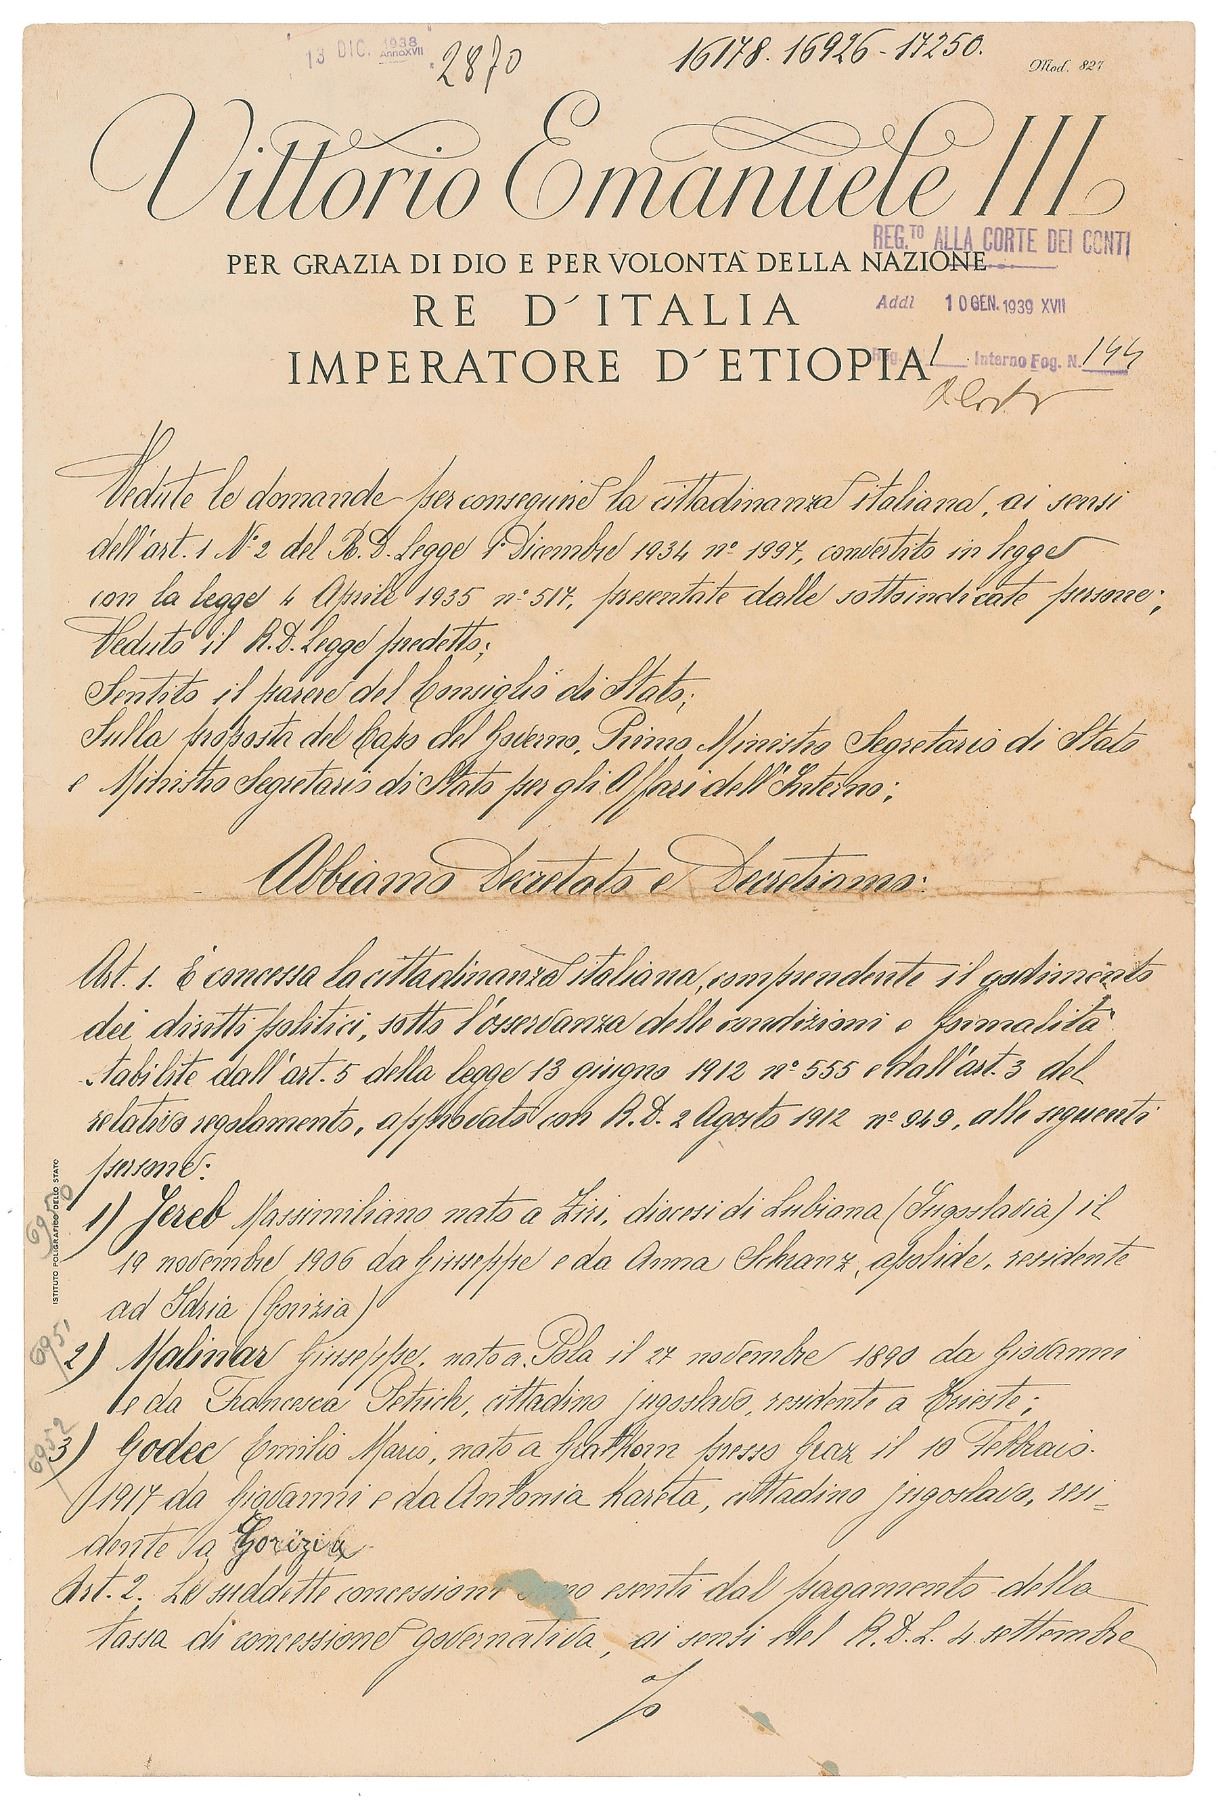 13 DIC. 1938
Anno XVII
2870
16178. 16926 - 17250.
Mod. 827
Vittorio Emanuele III
REG.TO ALLA CORTE DEI CONTI
PER GRAZIA DI DIO E PER VOLONTÀ DELLA NAZIONE
Addì 10 GEN. 1939 XVII
RE D'ITALIA
Reg. 1 Interno Fog. N. 144
IMPERATORE D'ETIOPIA
Vedute le domande per conseguire la cittadinanza italiana, ai sensi
dell'art. 1 N° 2 del R.D. Legge 1° Dicembre 1934 n° 1997, convertito in legge
con la legge 4 Aprile 1935 n° 517, presentate dalle sottoindicate persone;
Veduto il R.D. Legge predetto;
Sentito il parere del Consiglio di Stato;
Sulla proposta del Capo del Governo, Primo Ministro Segretario di Stato
e Ministro Segretario di Stato per gli Affari dell'Interno;
Abbiamo Decretato e Decretiamo:
Art. 1. È concessa la cittadinanza italiana, comprendente il godimento
dei diritti politici, sotto l'osservanza delle condizioni e formalità
stabilite dall'art. 5 della legge 13 giugno 1912 n° 555 e dall'art. 3 del
relativo regolamento, approvato con R.D. 2 Agosto 1912 n° 949, alle seguenti
persone:
ISTITUTO POLIGRAFICO DELLO STATO
6950
1) Jereb Massimiliano nato a Ziri, diocesi di Lubiana (Jugoslavia) il
19 novembre 1906 da Giuseppe e da Anna Sckranz, apolide, residente
ad Idria (Gorizia)
6951
2) Malinar Giuseppe, nato a Pola il 27 novembre 1890 da Giovanni
e da Francesca Petrich, cittadino jugoslavo, residente a Trieste;
6952
3) Godec Emilio Mario, nato a Gratkorn presso Graz il 10 Febbraio
1917 da Giovanni e da Antonia Kareta, cittadino jugoslavo, resi=
dente a Gorizia
Art. 2. Le suddette concessioni sono esenti dal pagamento della
tassa di concessione governativa, ai sensi del R.D.L. 4 settembre